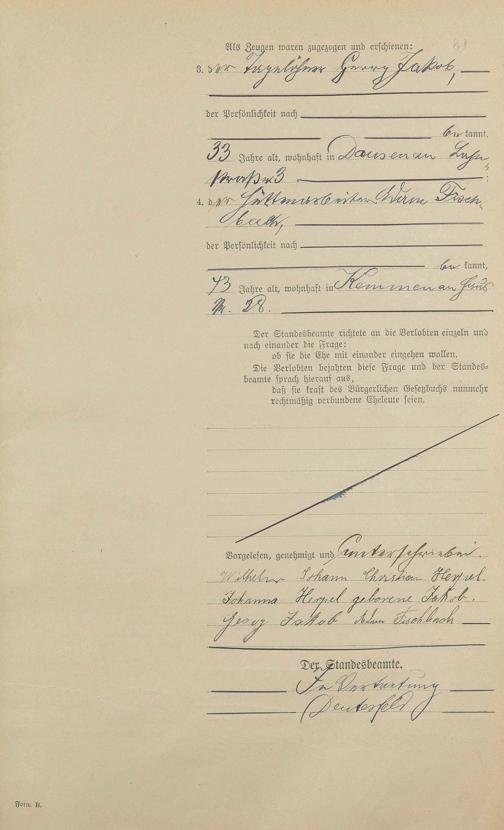 81
Als Zeugen waren zugezogen und erschienen:
3. der Tagelöhner Georg Jakob,
der Persönlichkeit nach
be kannt,
33 Jahre alt, wohnhaft in Dausenau Lahn-
straße 3
4. der Hüttenarbeiter Adam Fisch-
bach,
der Persönlichkeit nach
be kannt,
43 Jahre alt, wohnhaft in Kemmenau Haus
Nr. 28.
Der Standesbeamte richtete an die Verlobten einzeln und
nach einander die Frage:
ob sie die Ehe mit einander eingehen wollen.
Die Verlobten bejahten diese Frage und der Standes-
beamte sprach hierauf aus,
daß sie kraft des Bürgerlichen Gesetzbuchs nunmehr
rechtmäßig verbundene Eheleute seien.
Vorgelesen, genehmigt und unterschrieben.
Wilhelm Johann Christian Herpel.
Johanna Herpel geborene Jakob.
Georg Jakob Adam Fischbach
Der Standesbeamte.
In Vertretung
Form. B.